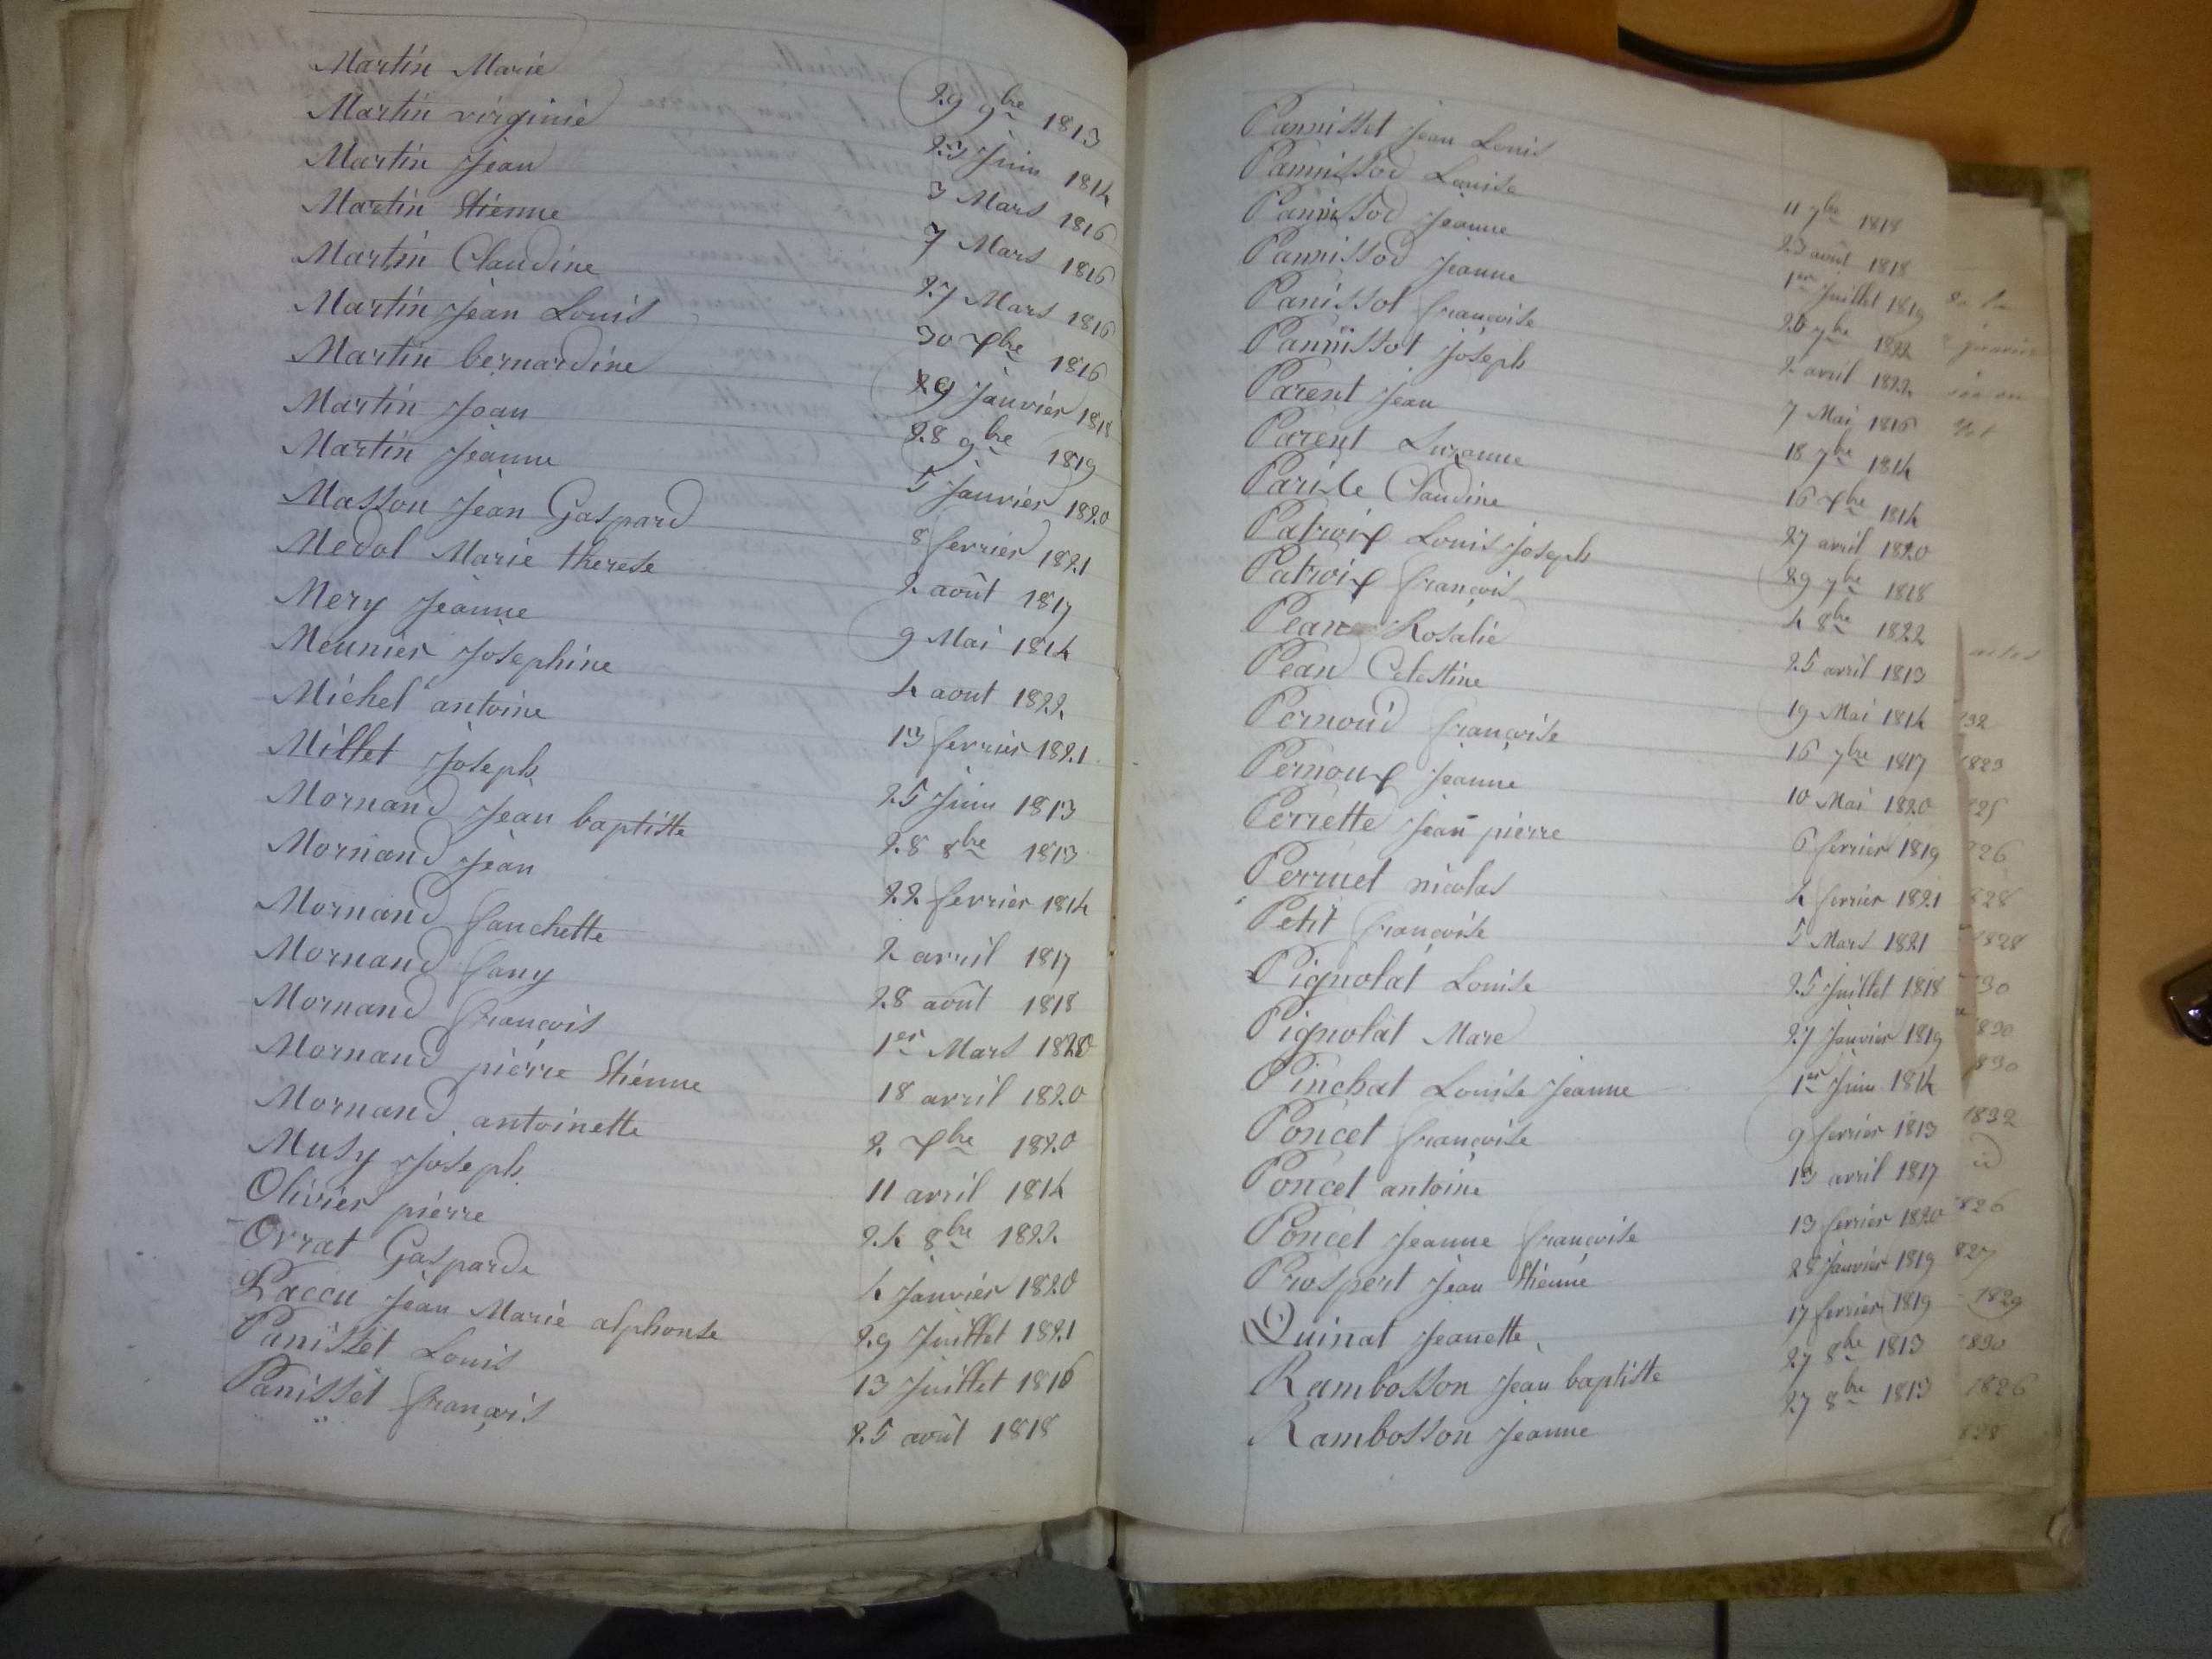 Martin Marie 29 9bre 1813
Martin virginie 23 Juin 1814
Martin Jean 3 Mars 1816
Martin Etienne 7 Mars 1816
Martin Claudine 27 Mars 1816
Martin Jean Louis 30 Xbre 1816
Martin bernardine 29 Janvier 1818
Martin Jean 28 9bre 1819
Martin Jeanne 5 Janvier 1820
Masson Jean Gaspard 8 fevrier 1821
Medol Marie therese 2 août 1817
Mery Jeanne 9 Mai 1814
Meunier Josephine 4 aout 1822
Michel antoine 13 fevrier 1821
Millet Joseph 25 Juin 1813
Mornand Jean baptiste 28 8bre 1813
Mornand Jean 22 fevrier 1814
Mornand fanchette 2 avril 1817
Mornand fany 28 août 1818
Mornand francois 1er Mars 1820
Mornand pierre Etienne 18 avril 1820
Mornand antoinette 2 Xbre 1820
Musy Joseph 11 avril 1814
Olivier pierre 24 8bre 1822
Orrat Gasparde 4 Janvier 1820
Paccu Jean Marie alphonse 29 Juillet 1821
Panisset Louis 13 Juillet 1816
Panisset françois 25 août 1818
Pannisset Jean Louis 11 7bre 1818
Pannissod Louise 23 août 1818
Panissod Jeanne 1er Juillet 1819
Pannissod Jeanne 26 7bre 1822
Panissot francoise 2 avril 1822
Pannissot Joseph 7 Mai 1816
Parent Jean 18 7bre 1814
Parent Suzanne 16 Xbre 1814
Parise Claudine 27 avril 1820
Patroix Louis Joseph 29 7bre 1818
Patroix françois 4 8bre 1822
Pean Rosalie 25 avril 1813
Pean Celestine 19 Mai 1814
Pernoud françoise 16 7bre 1817
Pernoux Jeanne 10 Mai 1820
Perrette Jean pierre 6 fevrier 1819
Perruet nicolas 4 fevrier 1821
Petit françoise 5 Mars 1821
Pignolat Louise 25 Juillet 1818
Pignolat Marc 27 Janvier 1819
Pinchat Louise Jeanne 1er Juin 1814
Poncet françoise 9 fevrier 1813
Poncet antoine 13 avril 1817
Poncet Jeanne francoise 13 fevrier 1820
Prospert Jean Etienne 28 Janvier 1819
Quinat Jeanette 17 fevrier 1819
Rambosson Jean baptiste 27 8bre 1813
Rambosson Jeanne 27 8bre 1813